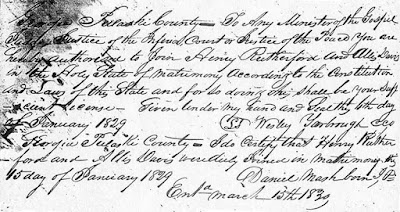 Georgia Pulaski County – To Any Minister of the Gospel
Judge Justice of the Inferior Court or Justice of the Peace You are
hereby Authorized to Join Henry Rutherford and Alls Davis
in the Holy State of Matrimony According to the Constitution
and Laws of this State and for so doing this shall be your Suff
icient License – Given Under my hand and Seal this 6th day
of January 1829 Wesley Yarbrough CCO
Georgia Pulaski County – I do Certify that Henry Ruther
ford and Alls Davis were duly Joined in Matrimony the
15 day of January 1829 Daniel Mashborn J.P.
Entd march 15th 1830